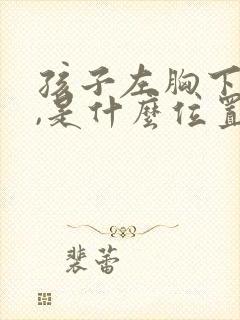 孩子左胸下
,是什麼位置
裴蕾